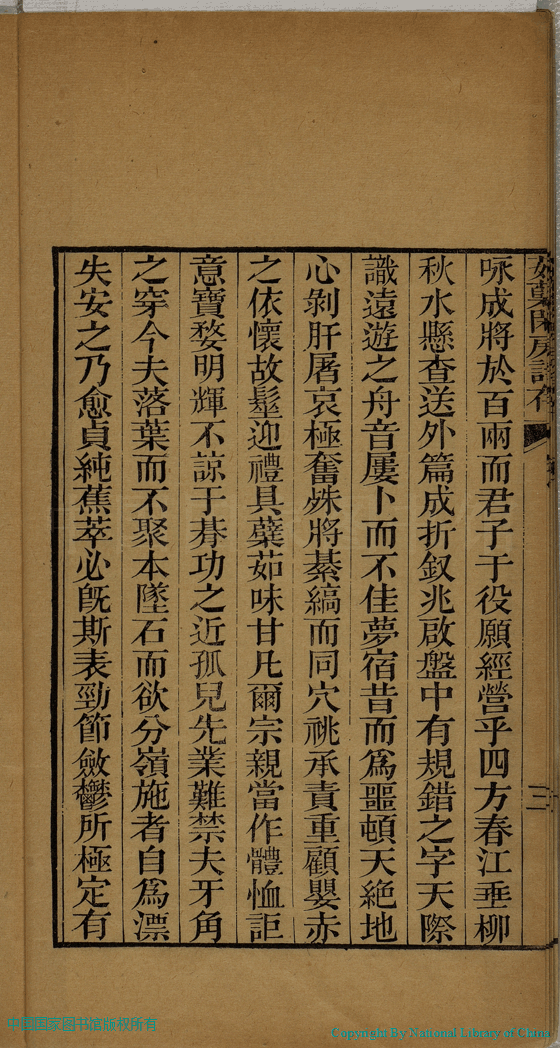 咏成將於百兩而君子于役願經營乎四方春江垂柳
秋水懸查送外篇成折釵兆啟盤中有規錯之字天際
識遠遊之舟音屢卜而不佳夢宿昔而為噩頓天絕地
心剝肝屠哀極奮殊將綦縞而同穴祧承責重顧嬰赤
之依懷故髽迎禮具蘗茹味甘凡爾宗親當作體恤詎
意寶婺明輝不諒于朞功之近孤兒先業難禁夫牙角
之穿今夫落葉而不聚本墜石而欲分嶺施者自為漂
失安之乃愈貞純蕉萃必既斯表勁節斂鬱所極定有
中國国家图书馆版权所有
Copyright By National Library of China